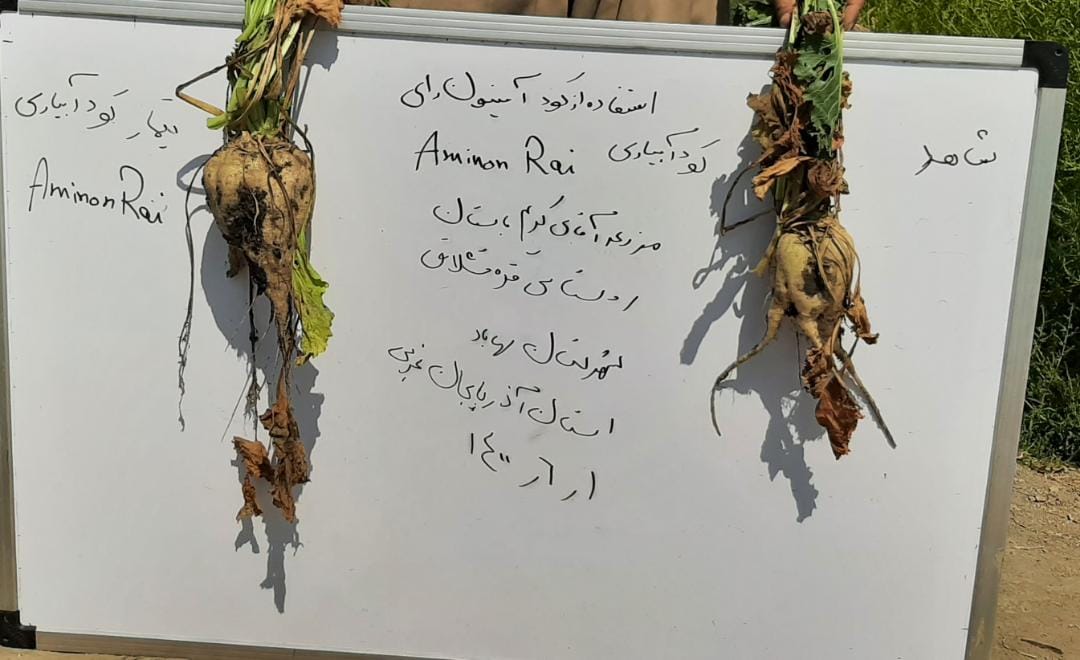 استفاده از کود آمینون رای
کود آبیاری Aminon Rai
مزرعه آقای کرم باستان
روستای قره قشلاق
شهرستان مهاباد
استان آذربایجان غربی
۱ر۶ر۱۴۰۰
شاهد
تیمار کود آبیاری
Aminon Rai